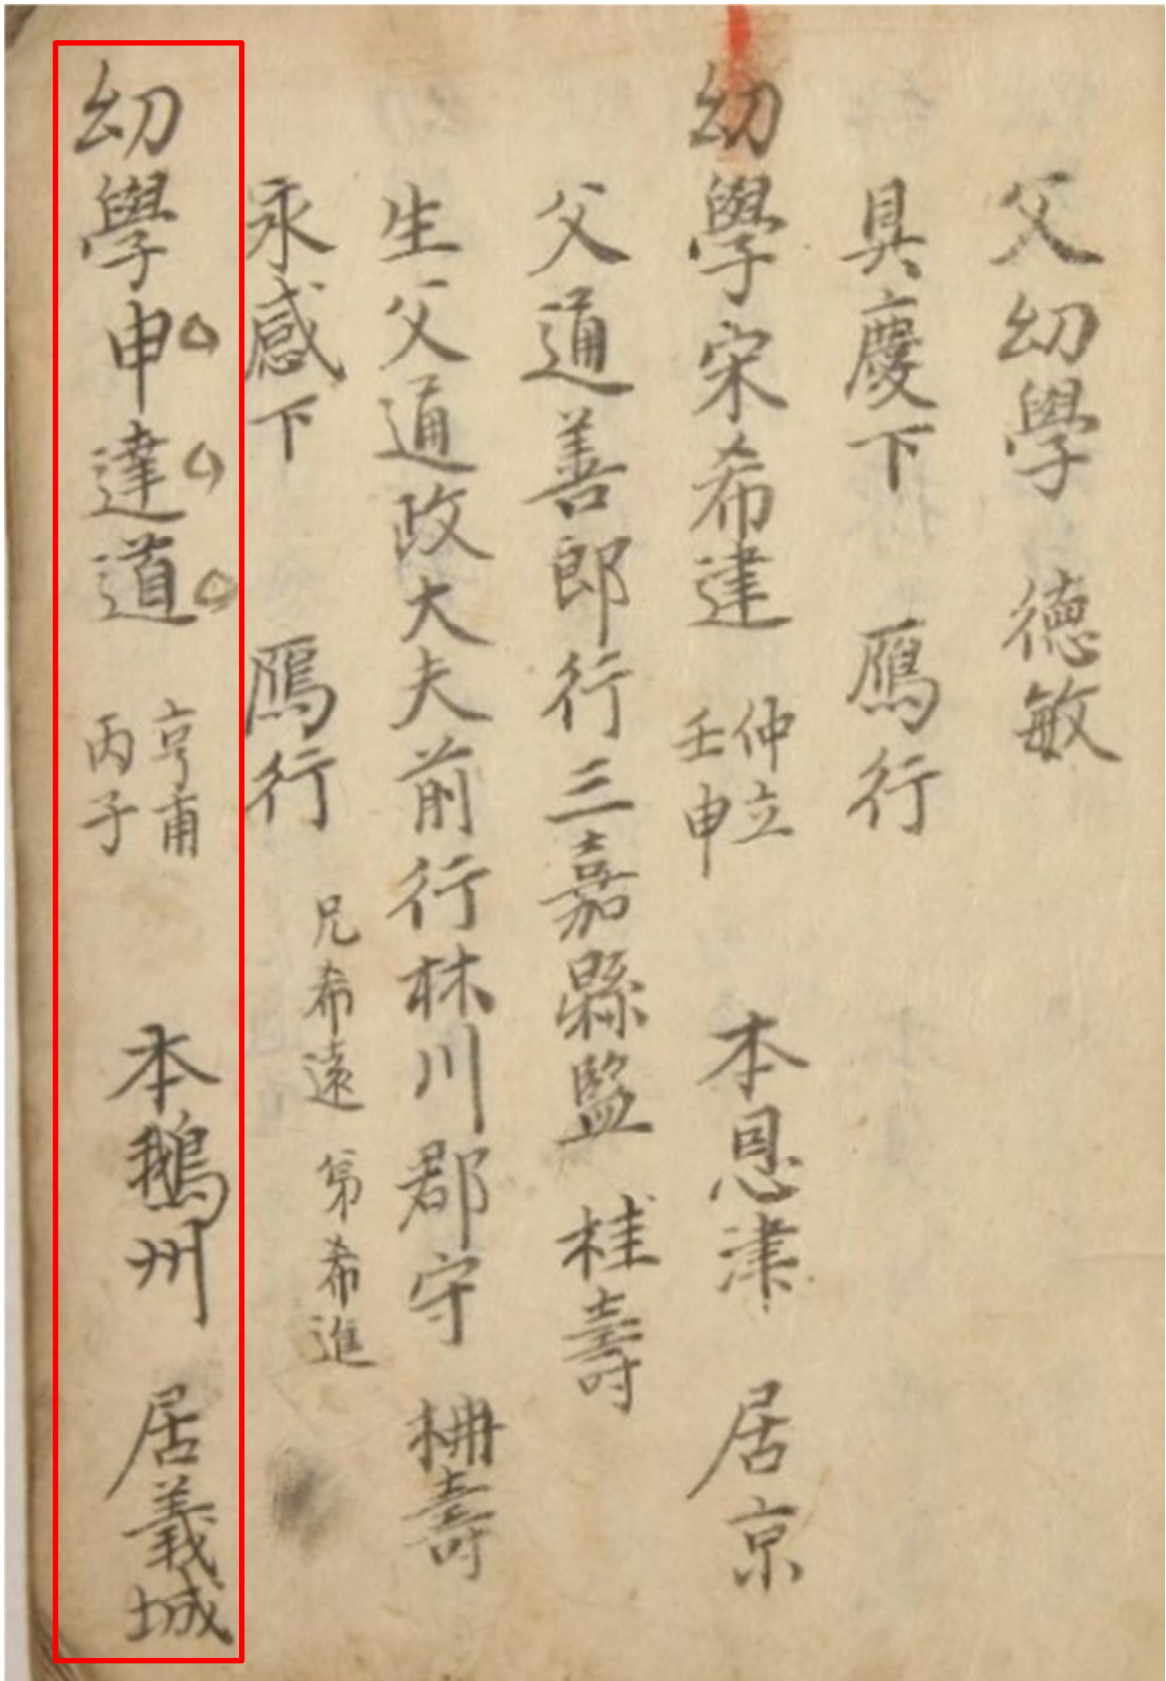 父幼學 德敏
具慶下 鴈行
幼學宋希建 仲立 壬申 本恩津 居京
父通善郎行三嘉縣監 桂壽
生父通政大夫前行林川郡守 柟壽
永感下 鴈行 兄希遠 弟希進
幼學申達道 亨甫 丙子 本鵝州 居義城